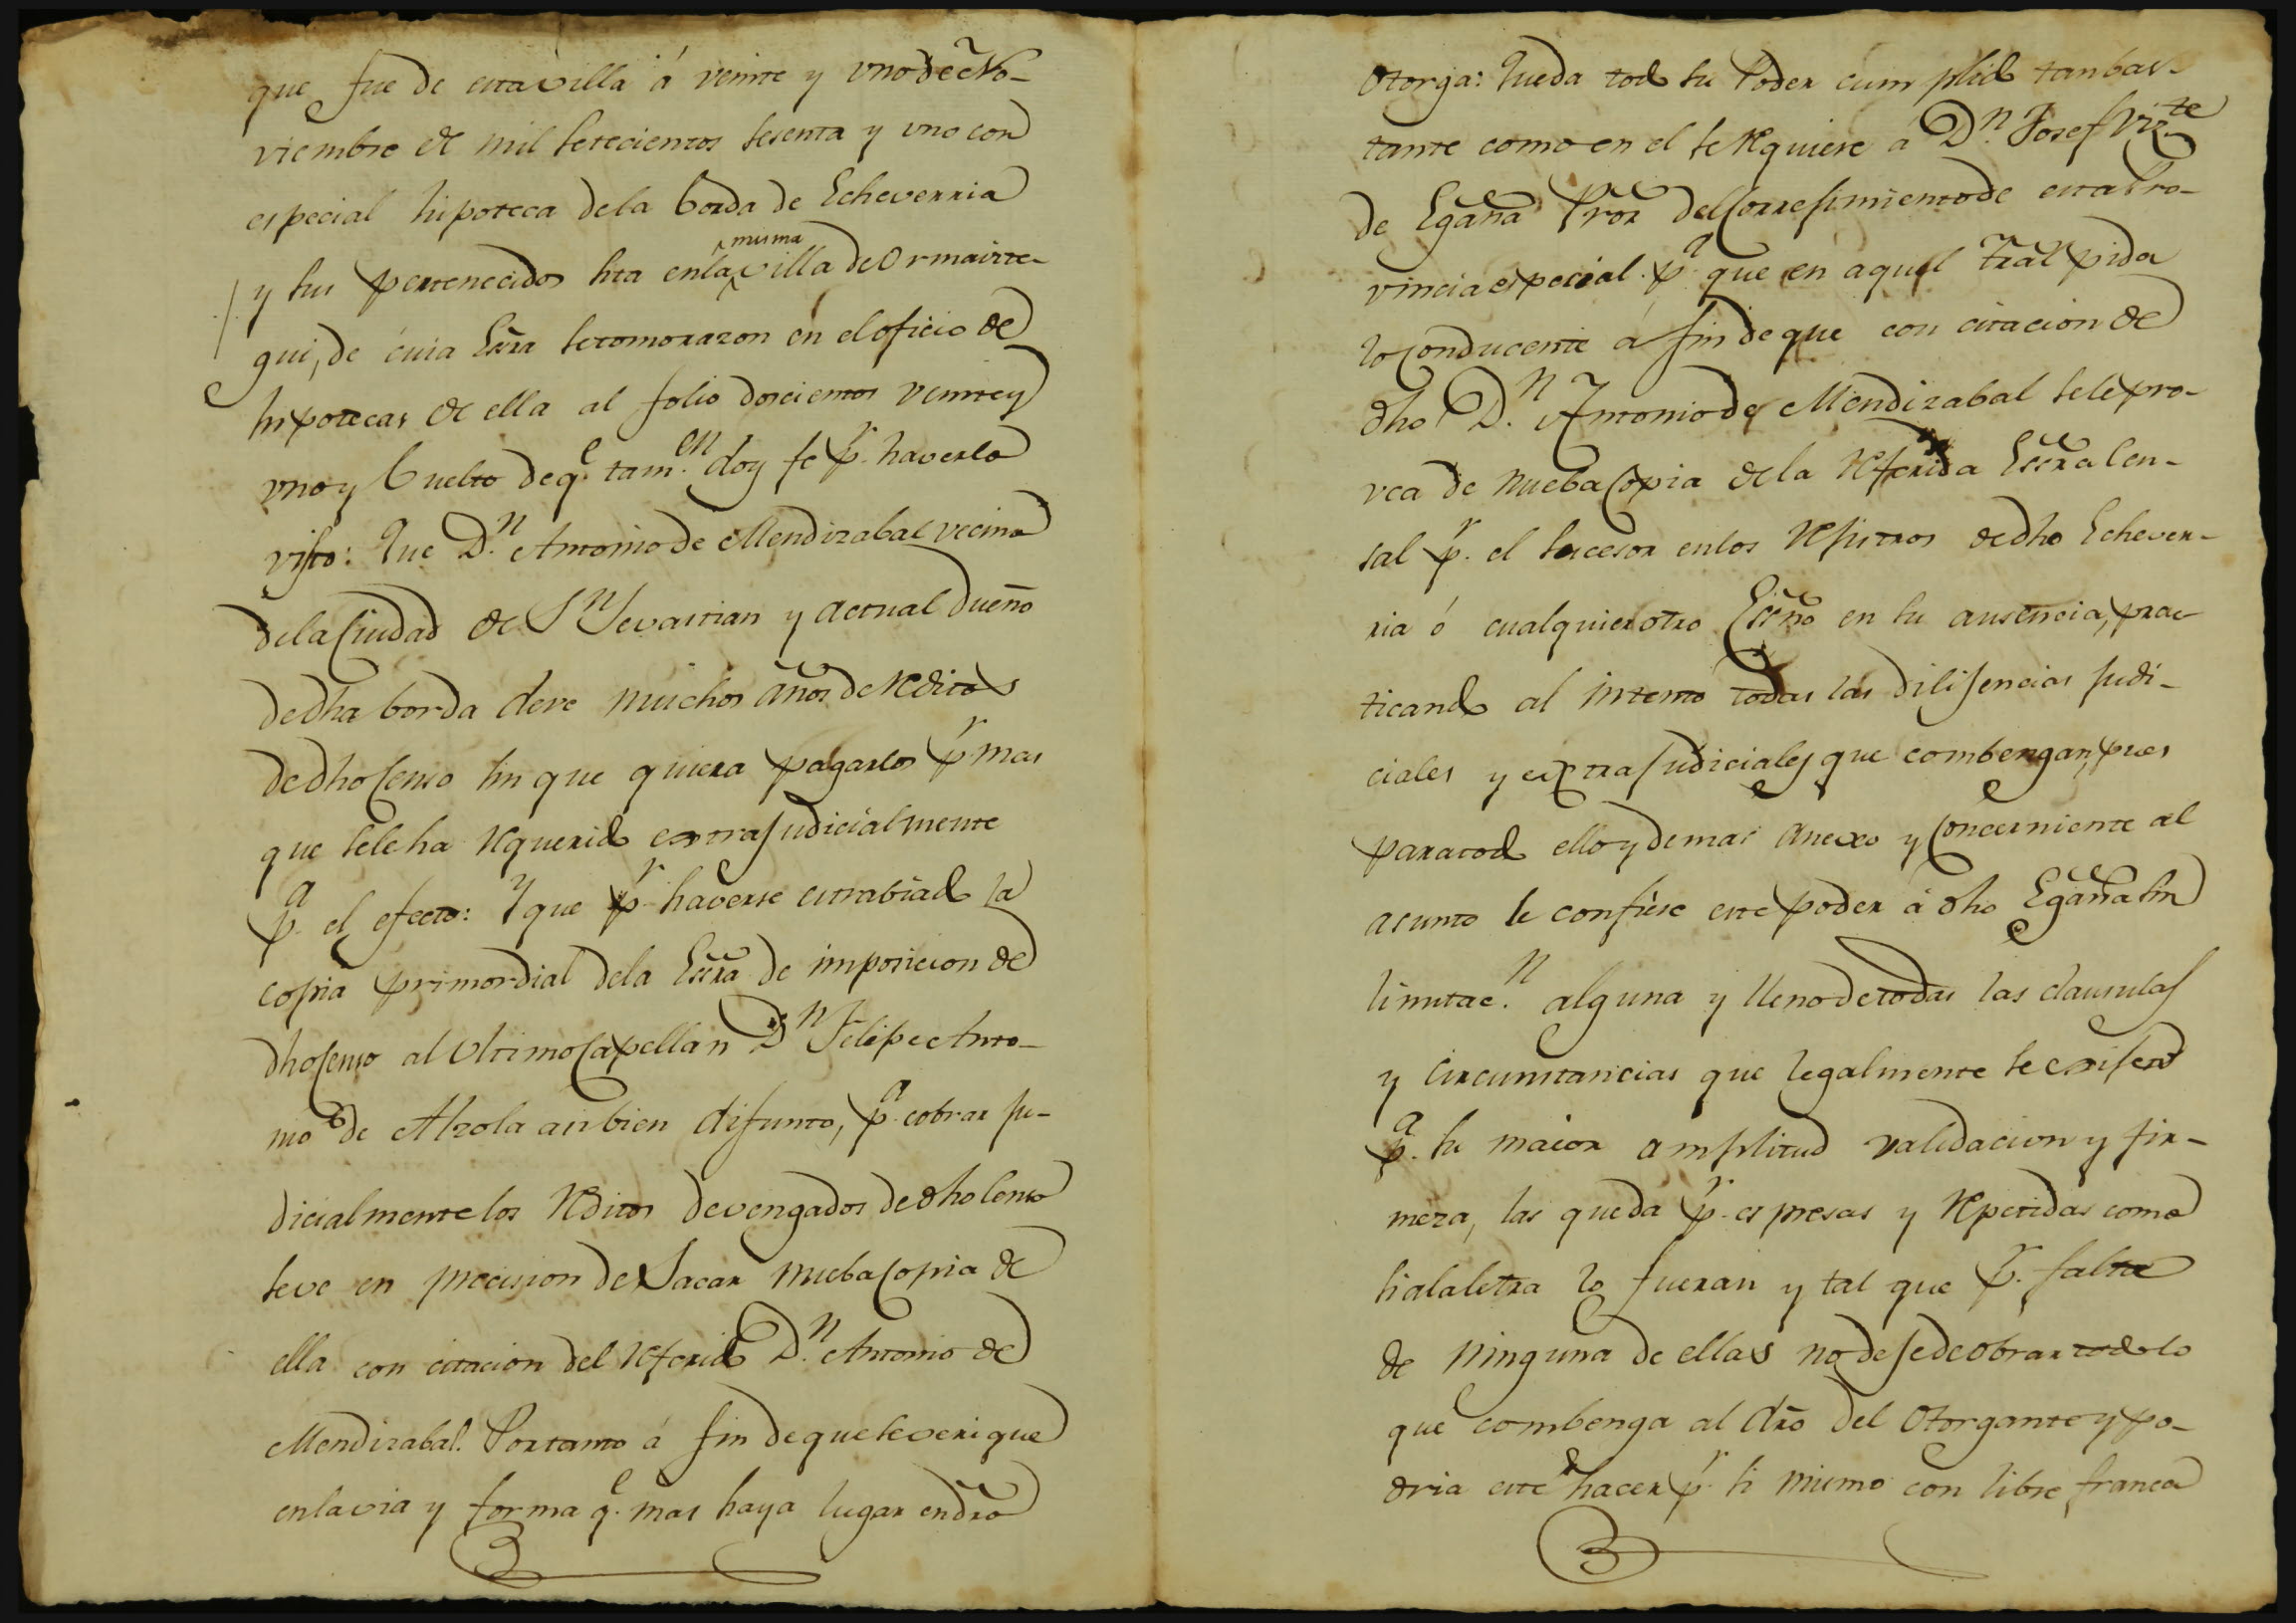 que fue de esta villa á veinte y uno de No-
viembre de mil setecientos sesenta y uno con
especial hipoteca de la borda de Echeverria
y sus pertenecidos sita en la misma villa de Ormaizte-
gui, de cuia Esc̃ra se tomo razon en el oficio de
hipotecas de ella al folio doscientos veinte y
uno y buelto de q.e tam.en doy fe p.r haverlo
visto: Que D.n Antonio de Mendizabal vecino
de la Ciudad de S.n Sevastian y actual dueño
de dha borda deve muchos años de reditos
de dho Censo sin que quiera pagarlos p.r mas
que se le ha requerido extrajudicialmente
p.a el efecto: Y que p.r haverse estrabiado la
copia primordial de la Esc̃ra de imposicion de
dho Censo al ultimo Capellan D.n Felipe Anto-
nio de Alzola aisbien difunto, p.a cobrar ju-
dicialmente los reditos devengados de dho Censo
se ve en precision de Sacar nueba Copia de
ella con citacion del referido D.n Antonio de
Mendizabal. Portanto á fin de que se verique
en la via y forma q.e mas haya lugar en dr̃o
Otorga: Que da todo su Poder cumplido tan bas-
tante como en el se requiere á D.n Josef Viz.te
de Egaña Pror̃ del Correjimiento de esta Pro-
vincia especial p.a que en aquel tr̃al pida
lo conducente á fin de que con citacion de
dho D.n Antonio de Mendizabal se le pro-
vea de nueba Copia de la referida Esc̃ra Cen-
sal p.r el sucesor en los rejistros de dho Echever-
ria ó cualquier otro Esc̃no en su ausencia, prac-
ticando al intento todas las dilijencias judi-
ciales y extrajudiciales que combengan, pues
para todo ello y demas anexo y Concerniente al
asunto le confiere este poder á dho Egaña sin
limitac.n alguna y lleno de todas las clausulas
y circunstancias que legalmente se exijen
p.a su maior amplitud validacion y fir-
meza, las que da p.r espresas y repetidas como
si a la letra lo fueran y tal que p.r falta
de ninguna de ellas no deje de obrar todo lo
que combenga al dr̃o del Otorgante y po-
dria este hacer p.r si mismo con libre franca